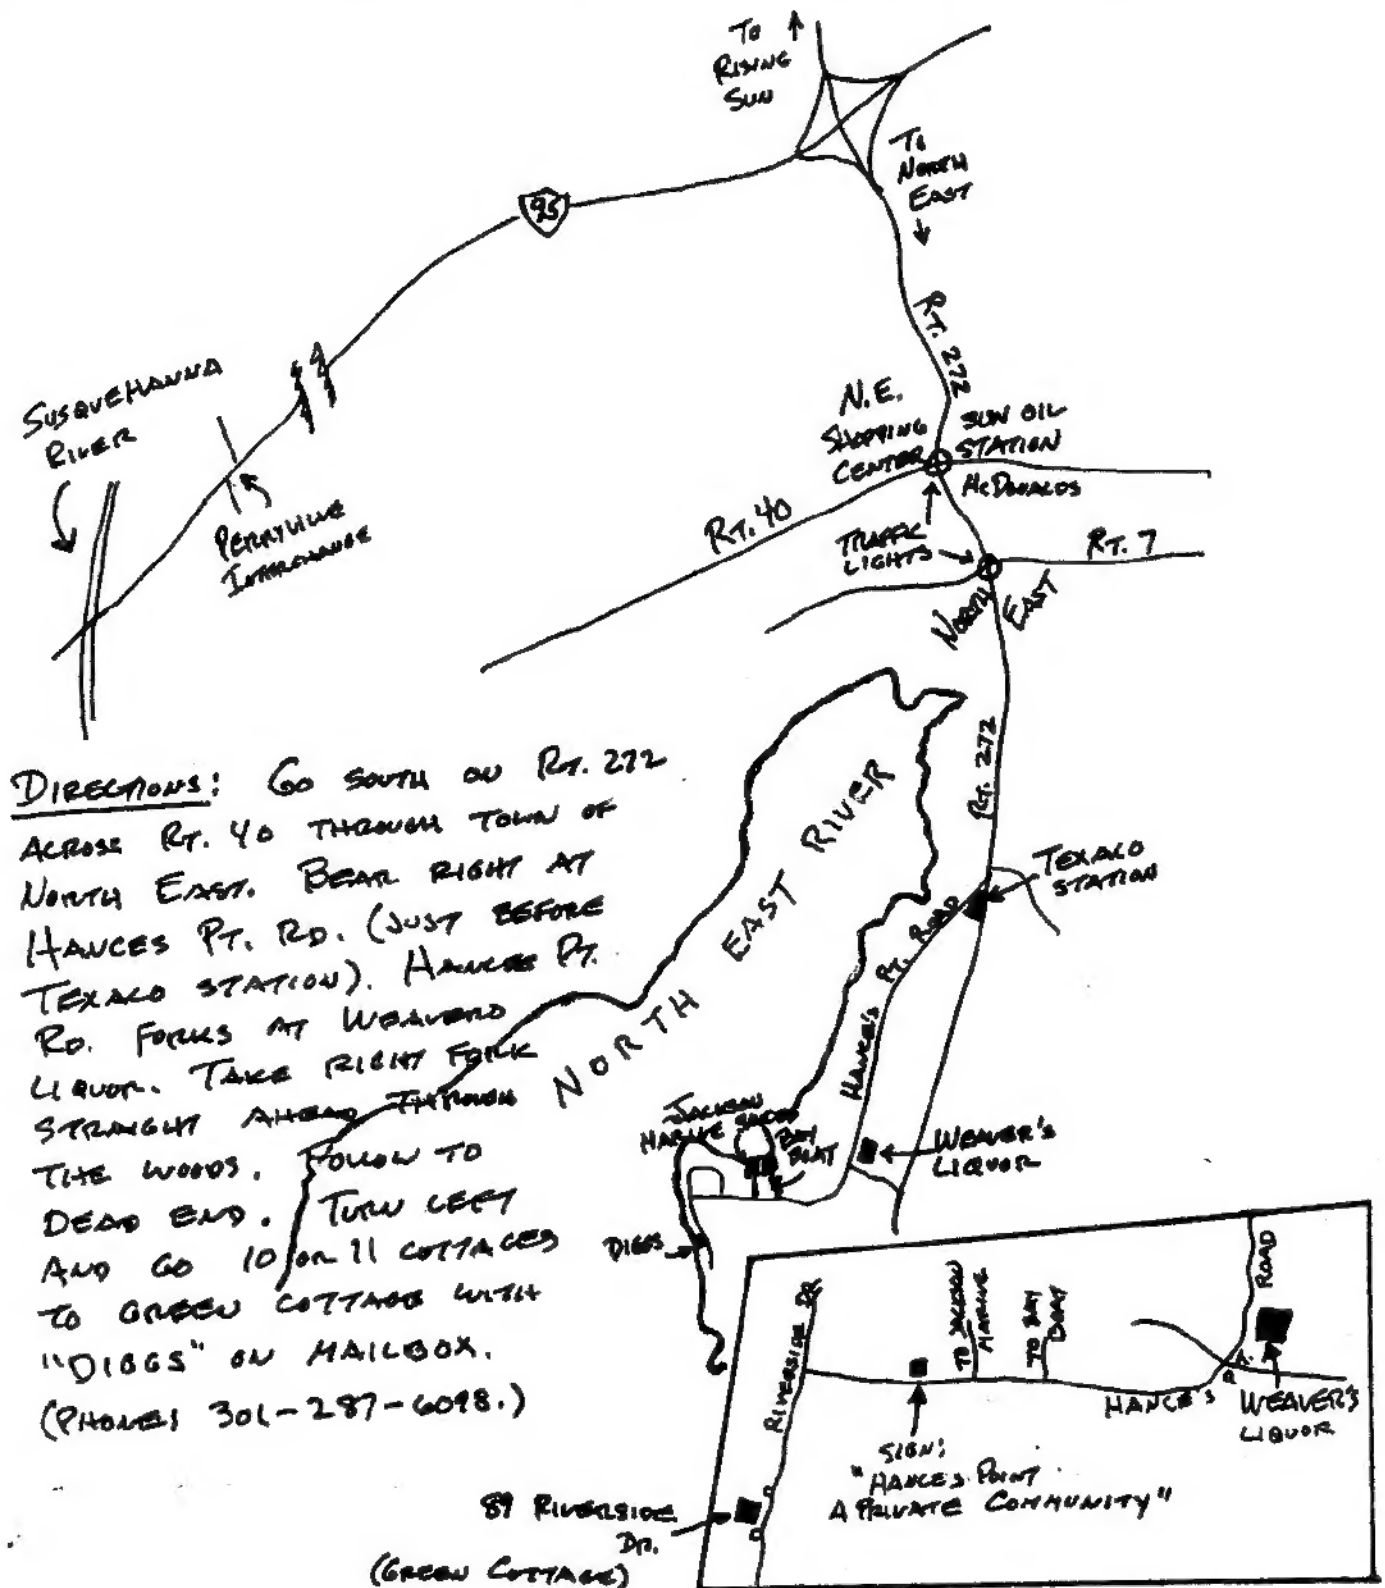 TO
RISING
SUN
TO
NORTH
EAST
95
RT. 272
SUSQUEHANNA
RIVER
PERRYVILLE
INTERCHANGE
N.E.
SHOPPING
CENTER
SUN OIL
STATION
McDONALDS
RT. 40
TRAFFIC
LIGHTS
RT. 7
NORTH EAST
RT. 272
NORTH EAST RIVER
TEXACO
STATION
HANCE'S PT. ROAD
DIRECTIONS: GO SOUTH ON RT. 272
ACROSS RT. 40 THROUGH TOWN OF
NORTH EAST. BEAR RIGHT AT
HANCES PT. RD. (JUST BEFORE
TEXACO STATION). HANCES PT.
RD. FORKS AT WEAVERS
LIQUOR. TAKE RIGHT FORK
STRAIGHT AHEAD THROUGH
THE WOODS. FOLLOW TO
DEAD END. TURN LEFT
AND GO 10 OR 11 COTTAGES
TO GREEN COTTAGE WITH
"DIGGS" ON MAILBOX.
(PHONE: 301-287-6098.)
JACKSON
MARINE
BAY
BOAT
WEAVER'S
LIQUOR
DIGGS
RIVERSIDE DR
TO JACKSON
MARINE
TO BAY
BOAT
ROAD
HANCE'S
WEAVER'S
LIQUOR
SIGN:
"HANCES POINT
A PRIVATE COMMUNITY"
89 RIVERSIDE
DR.
(GREEN COTTAGE)